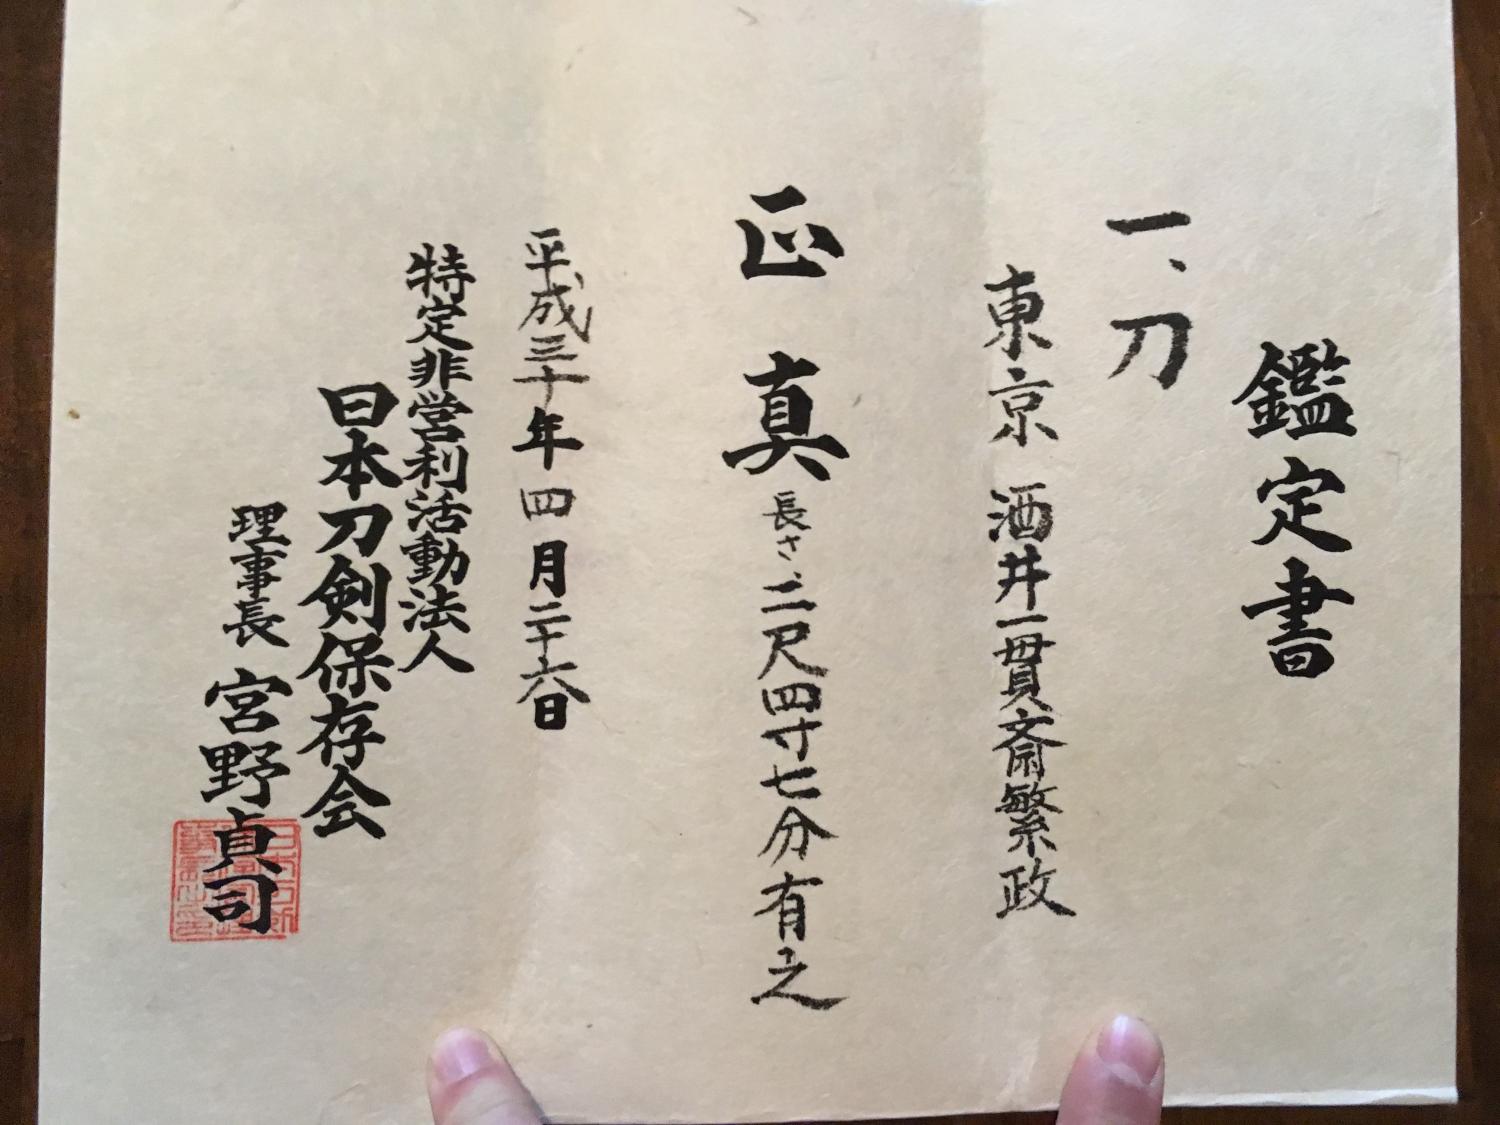 鑑定書
一、刀
東京 酒井一貫斎繁政
正真 長さ、二尺四寸七分有之
平成三十年四月二十六日
特定非営利活動法人
日本刀剣保存会
理事長 宮野貞司